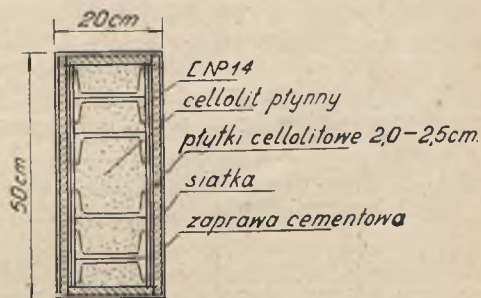 20cm
50cm
[ NP14
cellolit płynny
płytki cellolitowe 2,0-2,5cm.
siatka
zaprawa cementowa